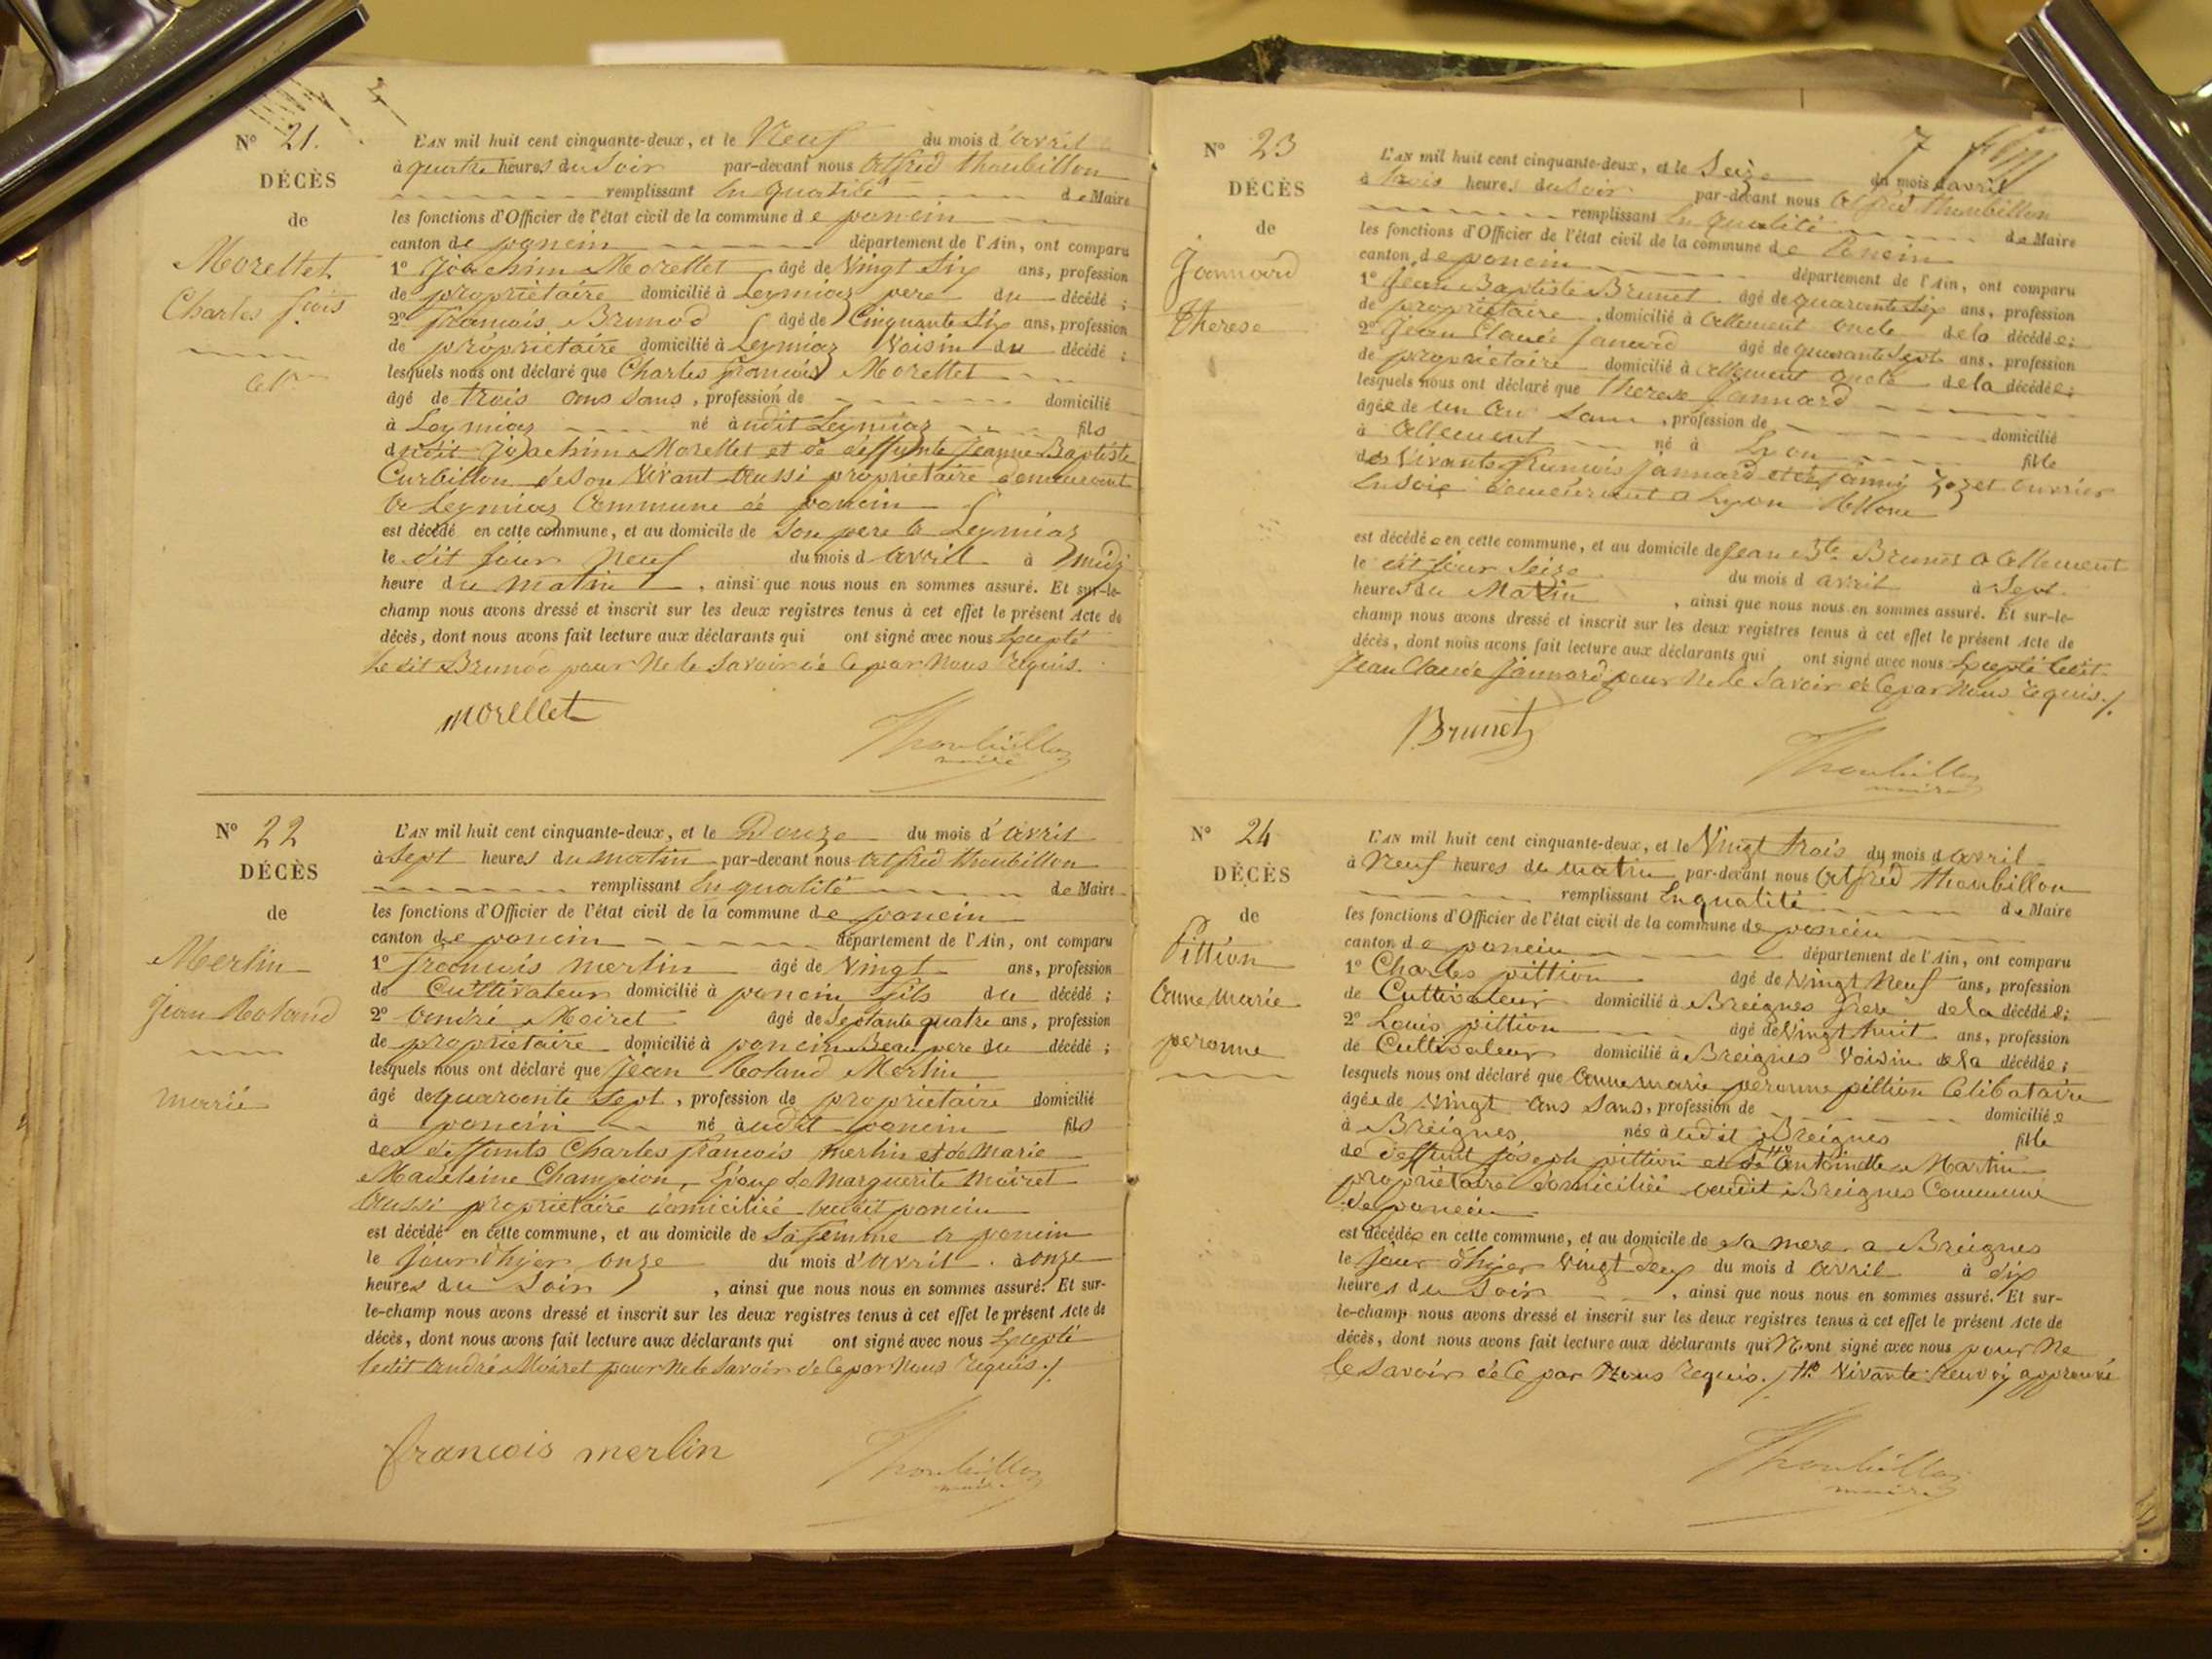 N° 21.
DÉCÈS
de
Morellet
Charles fçois
L'AN mil huit cent cinquante-deux, et le Neuf du mois d'avril
à quatre heures du Soir par-devant nous Alfred thoubillon
remplissant En qualité de Maire
les fonctions d'Officier de l'état civil de la commune de poncin
canton de poncin département de l'Ain, ont comparu
1° Joachim Morellet âgé de Vingt Six ans, profession
de propriétaire domicilié à Leymiaz pere du décédé ;
2° francois Brunod âgé de Cinquante Six ans, profession
de propriétaire domicilié à Leymiaz Voisin du décédé ;
lesquels nous ont déclaré que Charles francois Morellet
âgé de trois ans Sans, profession de domicilié
à Leymiaz né audit Leymiaz fils
dudit Joachim Morellet et de deffunte Jeanne Baptiste
Curbillon de Son Vivant aussi propriétaire demeurant
a Leymiaz Commune de poncin
est décédé en cette commune, et au domicile de Son pere a Leymiaz
le dit Jour Neuf du mois d avril à Midi
heure du Matin, ainsi que nous nous en sommes assuré. Et sur-le-
champ nous avons dressé et inscrit sur les deux registres tenus à cet effet le présent Acte de
décès, dont nous avons fait lecture aux déclarants qui ont signé avec nous Excepté
Ledit Brunod pour Ne le Savoir de Ce par Nous Requis.
morellet
Thoubillon
maire
N° 22
DÉCÈS
de
Merlin
Jean Roland
marié
L'AN mil huit cent cinquante-deux, et le Douze du mois d'avril
à Sept heures du matin par-devant nous Alfred thoubillon
remplissant En qualité de Maire
les fonctions d'Officier de l'état civil de la commune de poncin
canton de poncin département de l'Ain, ont comparu
1° francois merlin âgé de Vingt ans, profession
de Cultivateur domicilié à poncin fils du décédé ;
2° andré Moiret âgé de Septante quatre ans, profession
de propriétaire domicilié à poncin Beau pere du décédé ;
lesquels nous ont déclaré que Jean Roland Merlin
âgé de quarante Sept, profession de propriétaire domicilié
à poncin né audit poncin fils
des deffunts Charles francois merlin et de Marie
Madeleine Champion, Epoux de Marguerite Moiret
aussi propriétaire domiciliée audit poncin
est décédé en cette commune, et au domicile de Sa femme a poncin
le Jour d'hyer onze du mois d'avril à onze
heures du Soir, ainsi que nous nous en sommes assuré. Et sur-
le-champ nous avons dressé et inscrit sur les deux registres tenus à cet effet le présent Acte de
décès, dont nous avons fait lecture aux déclarants qui ont signé avec nous Excepté
ledit andré Moiret pour Ne le Savoir de Ce par Nous Requis./.
francois merlin
Thoubillon
maire
7
N° 23
DÉCÈS
de
Jannard
Therese
L'AN mil huit cent cinquante-deux, et le Seize du mois d'avril
à trois heures du Soir par-devant nous Alfred thoubillon
remplissant En qualité de Maire
les fonctions d'Officier de l'état civil de la commune de Poncin
canton de poncin département de l'Ain, ont comparu
1° Jean Baptiste Brunet âgé de quarante Six ans, profession
de propriétaire, domicilié à Allement oncle de la décédée ;
2° Jean Claude Janard âgé de quarante Sept ans, profession
de propriétaire domicilié à Allement oncle de la décédée ;
lesquels nous ont déclaré que therese Jannard
âgée de un an Sans, profession de domicilié
à Allement né à Lyon fille
des Vivants francois Jannard et de fanny ouvrier
En Soie demeurant a Lyon Rhone
est décédée en cette commune, et au domicile de Jean Bte Brunet a Allement
le dit Jour Seize du mois d avril à Sept
heures du Matin, ainsi que nous nous en sommes assuré. Et sur-le-
champ nous avons dressé et inscrit sur les deux registres tenus à cet effet le présent Acte de
décès, dont nous avons fait lecture aux déclarants qui ont signé avec nous Excepté ledit
Jean Claude Jannard pour Ne le Savoir de Ce par Nous Requis./.
Brunet
Thoubillon
maire
N° 24
DÉCÈS
de
Pittion
anne marie
peronne
L'AN mil huit cent cinquante-deux, et le Vingt trois du mois d avril
à Neuf heures du matin par-devant nous Alfred thoubillon
remplissant En qualité de Maire
les fonctions d'Officier de l'état civil de la commune de poncin
canton de poncin département de l'Ain, ont comparu
1° Charles pittion âgé de Vingt Neuf ans, profession
de Cultivateur domicilié à Breignes frere de la décédée ;
2° Louis pittion âgé de Vingt huit ans, profession
de Cultivateur domicilié à Breignes Voisin de la décédée ;
lesquels nous ont déclaré que anne marie peronne pittion Célibataire
âgée de Vingt ans Sans, profession de domiciliée
à Breignes née audit Breignes fille
de deffunt Joseph pittion et de antoinette Martin
propriétaire domiciliée audit Breignes Commune
de poncin
est décédée en cette commune, et au domicile de Sa mere a Breignes
le Jour d'hyer Vingt deux du mois d avril à dix
heures du Soir, ainsi que nous nous en sommes assuré. Et sur-
le-champ nous avons dressé et inscrit sur les deux registres tenus à cet effet le présent Acte de
décès, dont nous avons fait lecture aux déclarants qui N'ont signé avec nous pour Ne
le Savoir de Ce par Nous Requis./. Vivante Renvoi approuvé
Thoubillon
maire